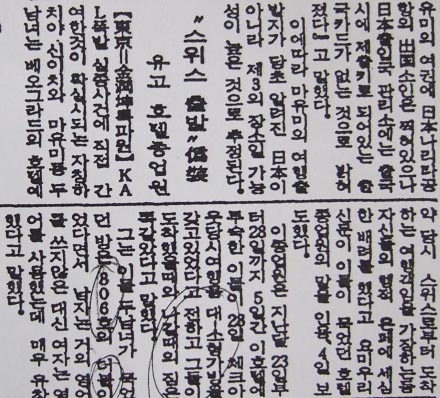 유미의 여권에 日本나리타공
항의 出国소인은 찍어있으나
日本출입국 관리소에는 출국
시에 제출키로 되어있는 출
국카드가 없는 것으로 밝혀
졌다」고 말했다.
이에따라 마유미의 여행출
발지가 당초 알려진 日本이
아니라 제3의 장소일 가능
성이 높은 것으로 추정된다.
“스위스 출발”偽装
유고 호텔종업원
【東京＝金潤坤특파원】 KA
L폭발 실종사건에 직접 간
여한것이 확실시되는 자칭하
치야 신이치와 마유미등 두
남녀는 베오그라드의 호텔에
약 당시 스위스로부터 도착
하는 여행객임을 가장하는등
자신들의 행적 은폐에 세심
한 배려를 했다고 요미우리
신문이 이들이 묵었던 호텔
종업원의 말을 인용, 4일 보
도했다.
이 종업원은 지난달 23일부
터 28일까지 5일간 이호텔에
투숙한 이들이 28일 체크아
웃당시 대 소형가방을
갖고있었다고 전하고 그들이
도착했을때와 나갈때의 짐은
똑같았다고 말했다.
그는 이들 두남녀가 묵었
던 방은 806호의 더블이
었다면서 남자는 거의 영어
를 쓰지않은 대신 여자는 영
어를 사용했는데 매우 유창
했다고 말했다.